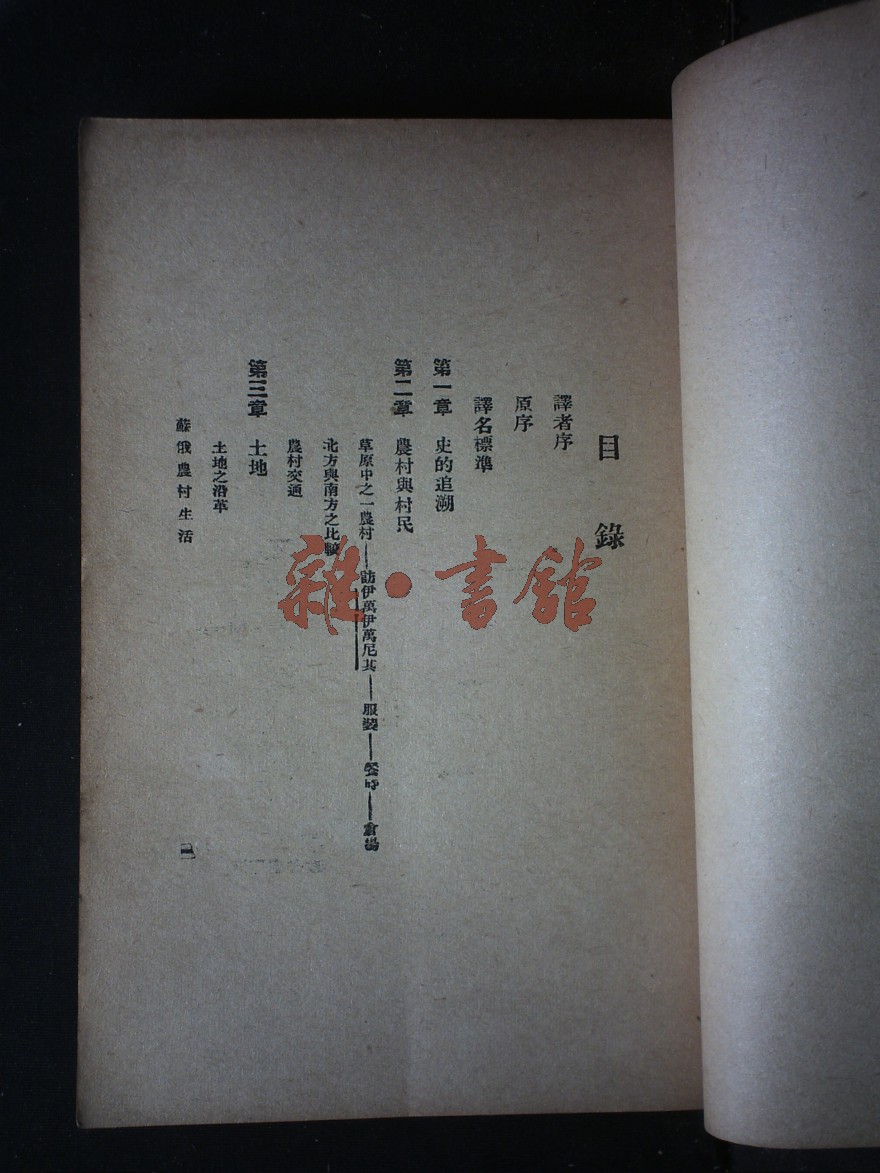 目錄
譯者序
原序
譯名標準
第一章 史的追溯
第二章 農村與村民
草原中之一農村——訪伊萬伊萬尼其——服裝——餐時——倉場
北方與南方之比較
農村交通
第三章 土地
土地之沿革
蘇俄農村生活
雜·書館